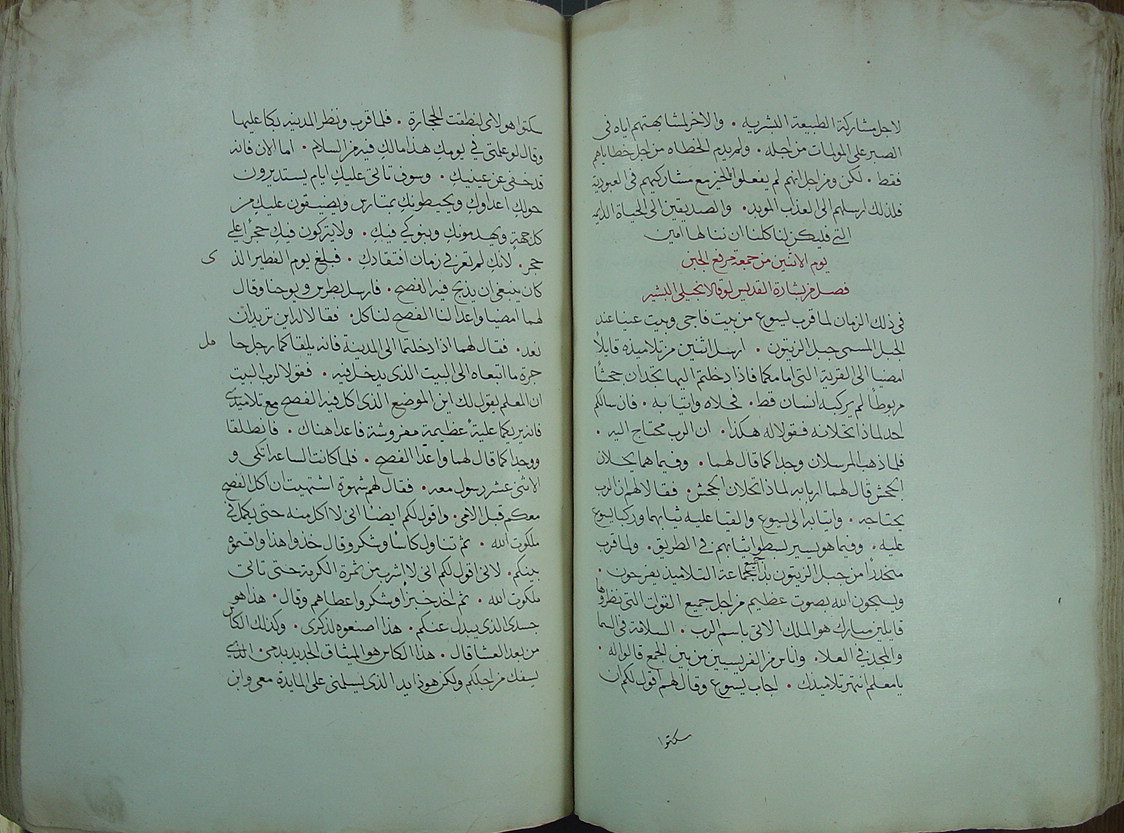 لاجل مشاركة الطبيعة البشرية • والاخر لمشابهتهم اياه في
الصبر على الموبات من اجله • ولم يديم الخطاه من اجل خطاياهم
فقط • لكن ومن اجل انهم لم يفعلوا الخير مع مشاركيهم في العبودية
فلذلك ارسلهم الى العذاب الموبد • والصديقين الى الحياة الدايمه
التي فليكن لنا كلنا ان ننالها امين
يوم الاثنين من جمعة مرفع الجبن
فصل من بشارة القديس لوقا الانجيلي البشير
في ذلك الزمان لما قرب يسوع من بيت فاجي وبيت عنيا عند
الجبل المسمى جبل الزيتون • ارسل اثنين من تلاميذه قايلاً
امضيا الى القرية التي امامكما فاذا دخلتم اليها تجدان جحشاً
مربوطاً لم يركبه انسان قط • فحلاه واتيا به • فان سالكم
احد لماذا تحلانه فقولا له هكذا • ان الرب محتاج اليه •
فلما ذهب المرسلان وجدا كما قال لهما • وفيما هما يحلان
الجحش قال لهما اربابه لماذا تحلان الجحش • فقالا لهم ان الرب
يحتاجه • واتيا به الى يسوع والقيا عليه ثيابهما وركبا يسوع
عليه • وفيما هو يسير بسطوا ثيابهم في الطريق • ولما قرب
متحدراً من جبل الزيتون بدا جميع جماعة التلاميذ يفرحون •
ويسبحون الله بصوت عظيم من اجل جميع القوات التي نظروها
قايلين مبارك هو الملك الاتي باسم الرب • السلامة في السما
والمجد في العلا • واناس من الفريسيين من بين الجمع قالوا له •
يا معلم انتهر تلاميذك • اجاب يسوع وقال لهم اقول لكم ان
سكتوا
سكتوا هولاي لنطقت الحجارة • فلما قرب ونظر المدينه بكا عليها
وقال لو علمتي في يومك هذا مالك فيه من السلام • اما الان فانه
قد خفي عن عينيك • وسوف تاتي عليك ايام يستديرون
حولك اعداوك ويحيطونك بمتاريس ويضيقون عليك من
كل جهة ويهدمونك وبنوكي فيك • ولا يتركون فيك حجر اعلى
حجر • لانك لم تعرفي زمان افتقادك • فبلغ يوم الفطير الذ
ى
كان ينبغي ان يذبح فيه الفصح • فارسل بطرس ويوحنا وقال
لهما امضيا واعدا لنا الفصح لناكل • فقالا له اين تريدان
نعد • فقال لهما اذا دخلتما الى المدينة فانه يلقاكما رجل حا
مل
جرة ما اتبعاه الى البيت الذي يدخل فيه • فقولا لرب البيت
ان المعلم يقول لك اين الموضع الذي اكل فيه الفصح مع تلاميذي
فانه يريكما علية عظيمة مفروشة فاعدا هناك • فانطلقا
ووجدا كما قال لهما واعدا الفصح • فلما كانت الساعه اتكى و
الاثنى عشر رسول معه • فقال لهم شهوة اشتهيت ان اكل الفصح
معكم قبل الامي • واقول لكم ايضاً انى لا اكل منه حتى يكمل في
ملكوت الله • ثم تناول كاساً وشكر وقال خذوا هذا واقسموه
بينكم • لاني اقول لكم انى لا اشرب من ثمرة الكرمة حتى تاتي
ملكوت الله • ثم اخذ خبزاً وشكر واعطاهم وقال • هذا هو
جسدي الذي يبذل عنكم • هذا اصنعوه لذكري • وكذلك الكاس
من بعد العشا قال • هذا الكاس هو الميثاق الجديد بدمي • الذي
يسفك من اجلكم ولكن هوذا يد الذي يسلمني على المايدة معي وابن